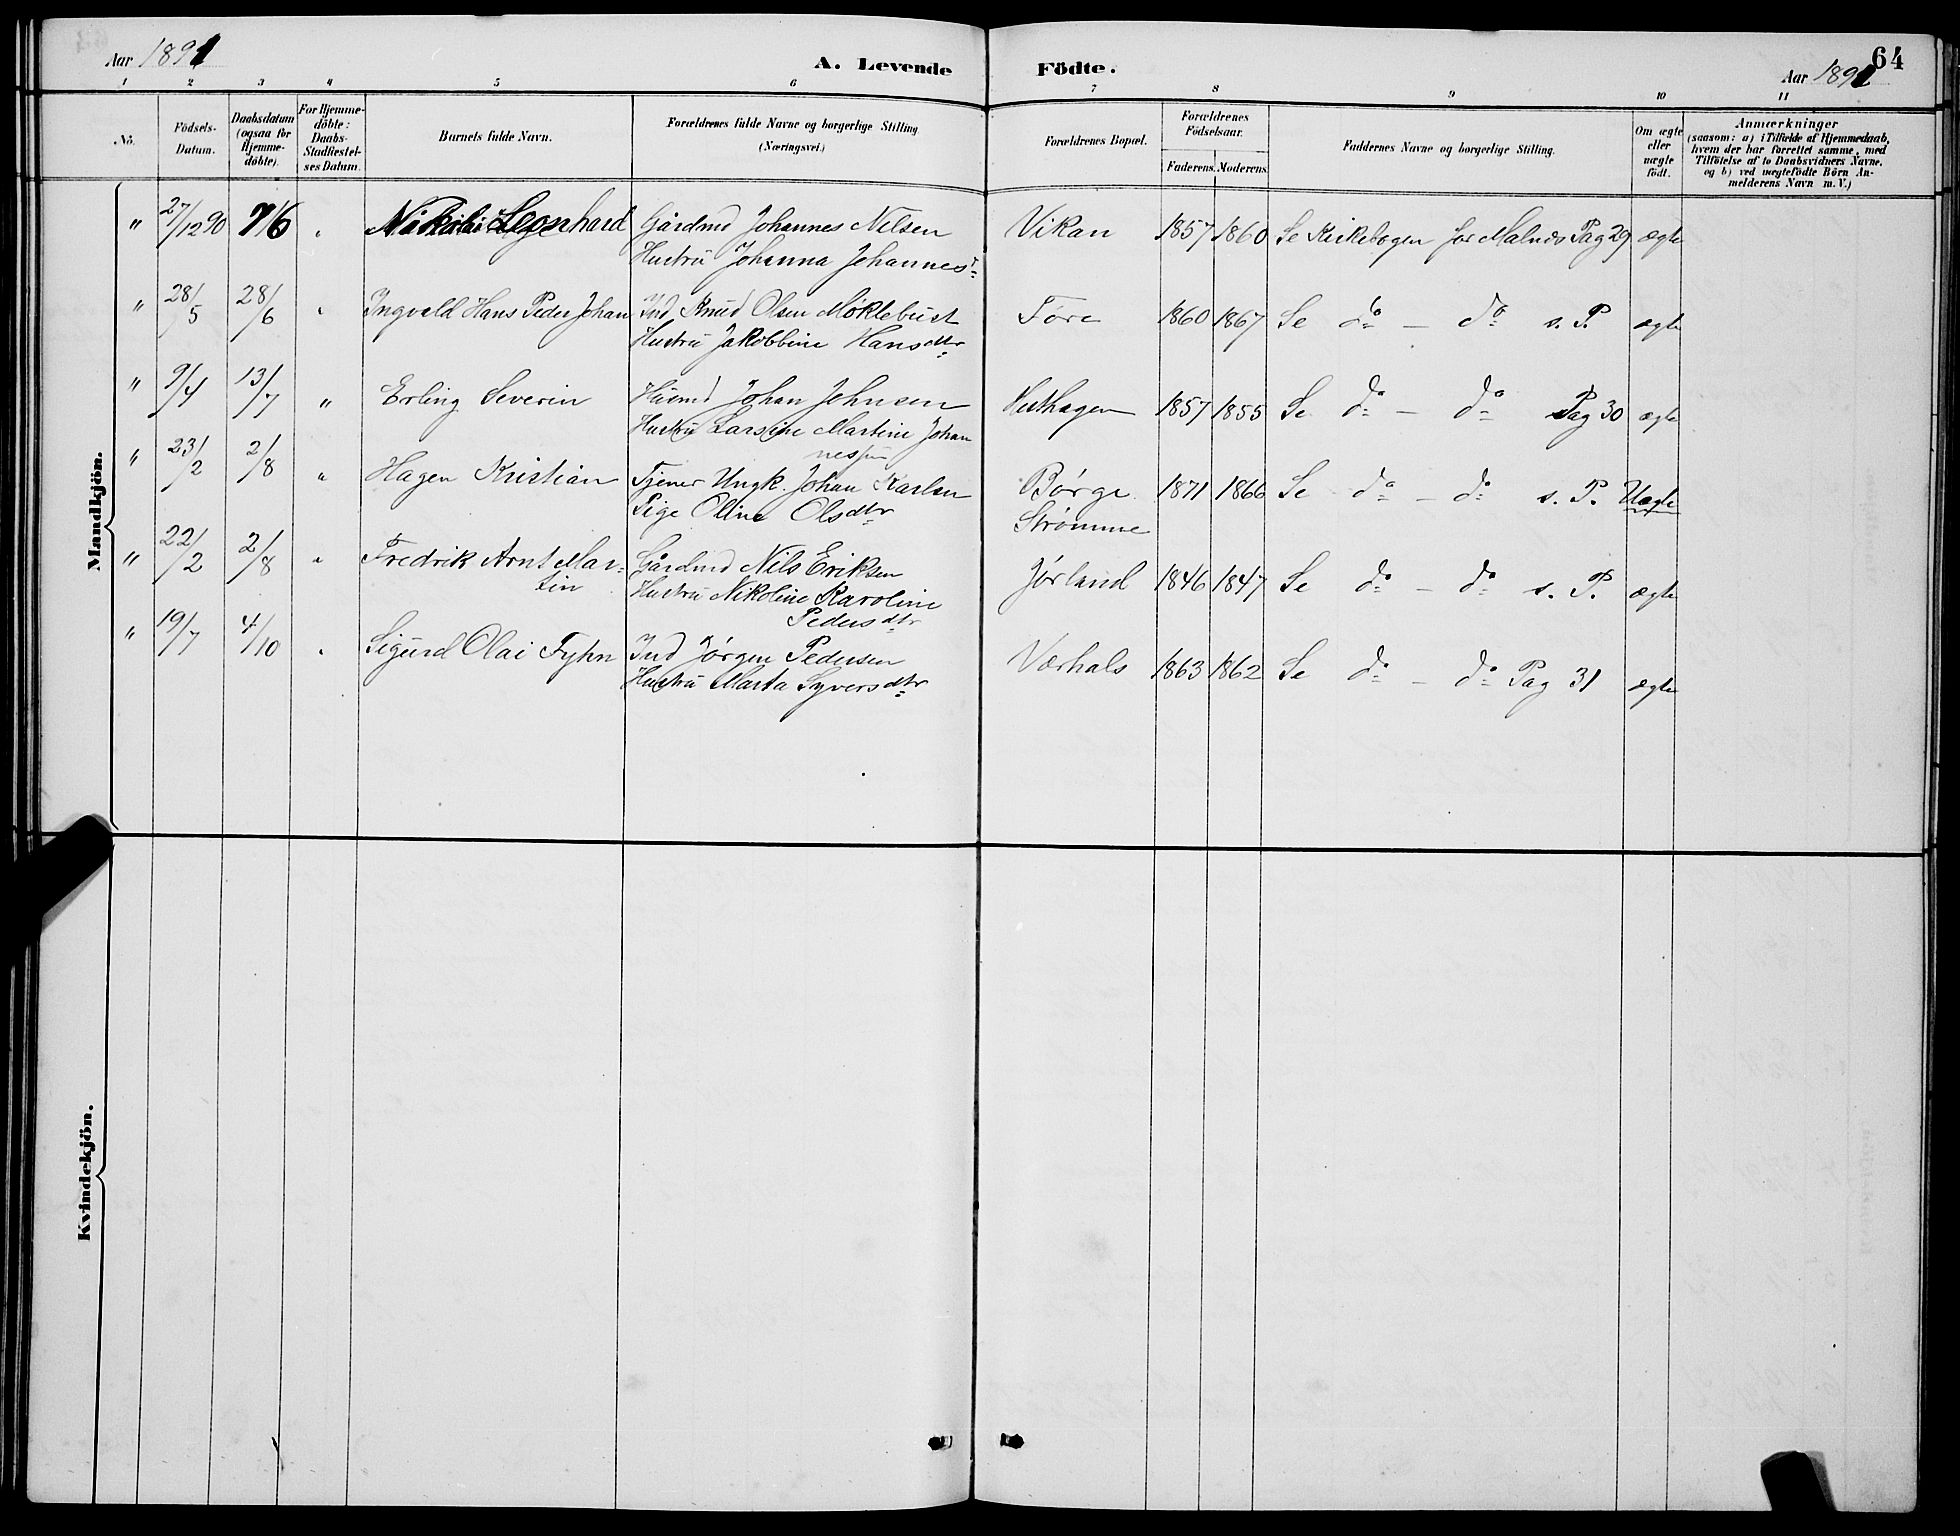 Aar 1891
A. Levende
Födte.
Aar 1891
64
1 2 3 4 5 6 7 8 9 10 11
No.
Födsels-
Datum.
Daabsdatum
(ogsaa for
Hjemme-
döbte).
For Hjemme-
döbte:
Daabs-
Stadfæstel-
ses Datum.
Barnets fulde Navn.
Forældrenes fulde Navne og borgerlige Stilling
(Næringsvei.)
Forældrenes Bopæl.
Forældrenes
Födselsaar.
Faderens. Moderens.
Faddernes Navne og borgerlige Stilling.
Om ægte
eller
uægte
födt.
Anmærkninger
(saasom: a) i Tilfælde af Hjemmedaab,
hvem der har forrettet samme, med
Tilföielse af to Daabsvidners Navne,
og b) ved uægtefödte Börn An-
melderens Navn m. V.)
Mandkjön.
" 27/12 90 7/6 " Nikolai Leonhard Gårdmd Johannes Nilsen Vikan 1857 1860 Se Kirkebogen for Malnæs Pag 29 ægte
Hustru Johanna Johannesd
" 28/5 28/6 " Ingvald Hans Peder Johan Ind Knud Olsen Møklebust Føre 1860 1867 Se do — do s. P. ægte
Hustru Jakobbine Hansdtr
" 9/4 13/7 " Erling Severin Husmd Johan Johnsen Husthagen 1857 1855 Se do — do Pag 30 ægte
Hustru Larsine Martine Johan
" 23/2 2/8 " Hagen Kristian Tjener Ungk. Johan Karlsen Børge 1871 1866 Se do — do s. P. Uægte
Pige Oline Olsdtr Strømme
" 22/2 2/8 " Fredrik Arnt Mar-
tin Gårdmd Nils Eriksen Jørland 1846 1847 Se do — do s. P. ægte
Hustru Nikoline Karoline
Pedersdtr
" 19/7 4/10 " Sigurd Olai Fyhn Ind Jørgen Pedersen Værhals 1863 1862 Se do — do Pag 31 ægte
Hustru Marta Syversdtr
Kvindekjön.